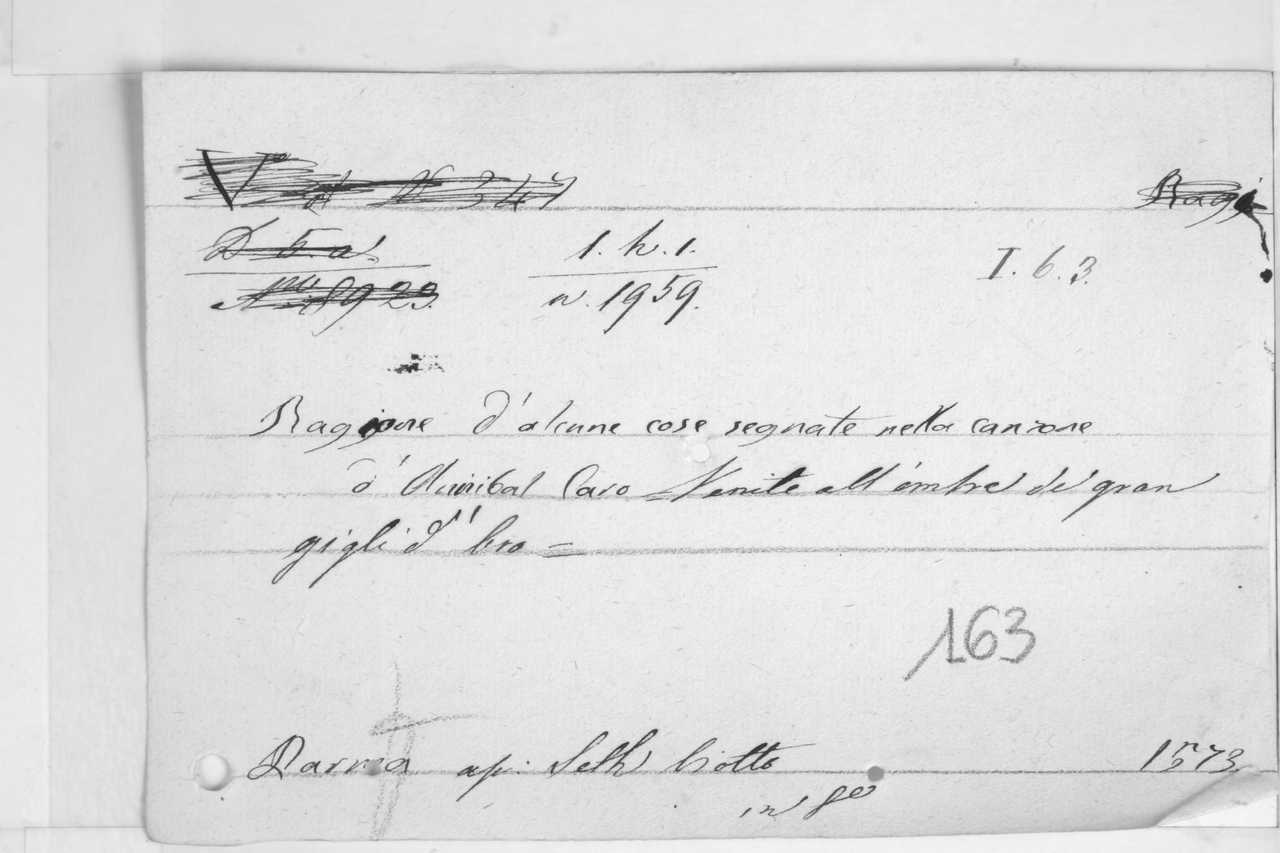 V N 347
Ragi
D. 5. a.
1. h. 1.
I. 6. 3.
8923.
n. 1959.
Ragione d'alcune cose segnate nella canzone
d' Annibal Caro = Venite all' ombra de' gran
gigli d' Oro =
163
Parma ap: Seth Viotto
1573
in 8º